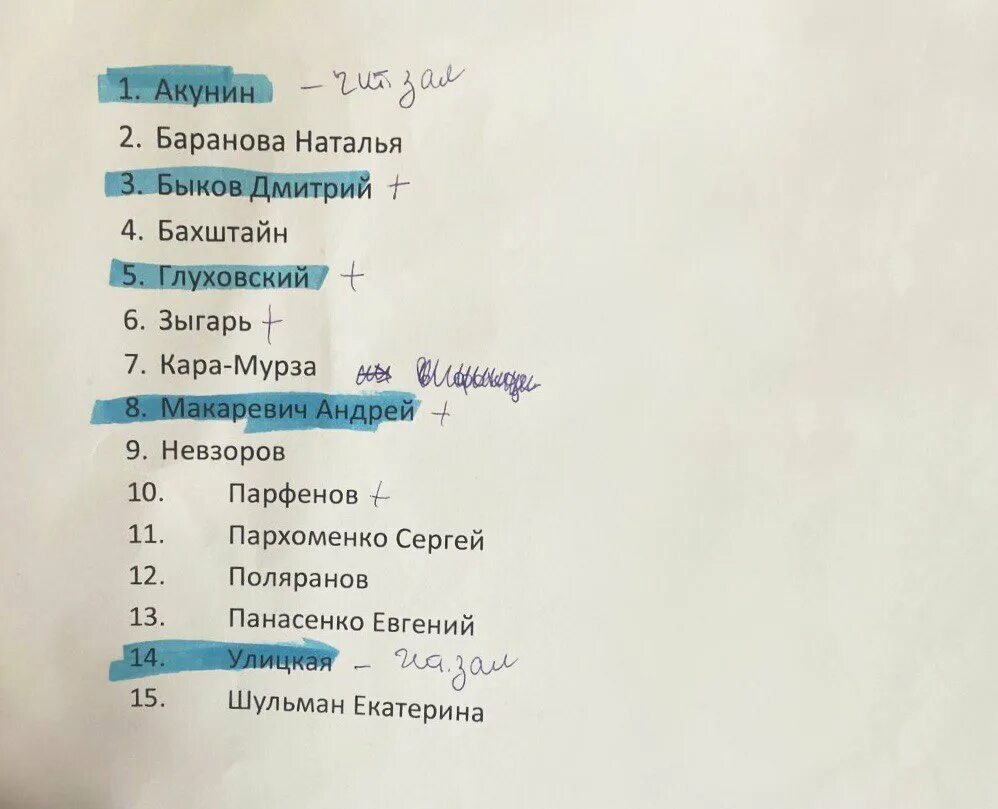 1. Акунин - чит. зал
2. Баранова Наталья
3. Быков Дмитрий +
4. Бахштайн
5. Глуховский +
6. Зыгарь +
7. Кара-Мурза
8. Макаревич Андрей +
9. Невзоров
10. Парфенов +
11. Пархоменко Сергей
12. Поляранов
13. Панасенко Евгений
14. Улицкая - зал
15. Шульман Екатерина